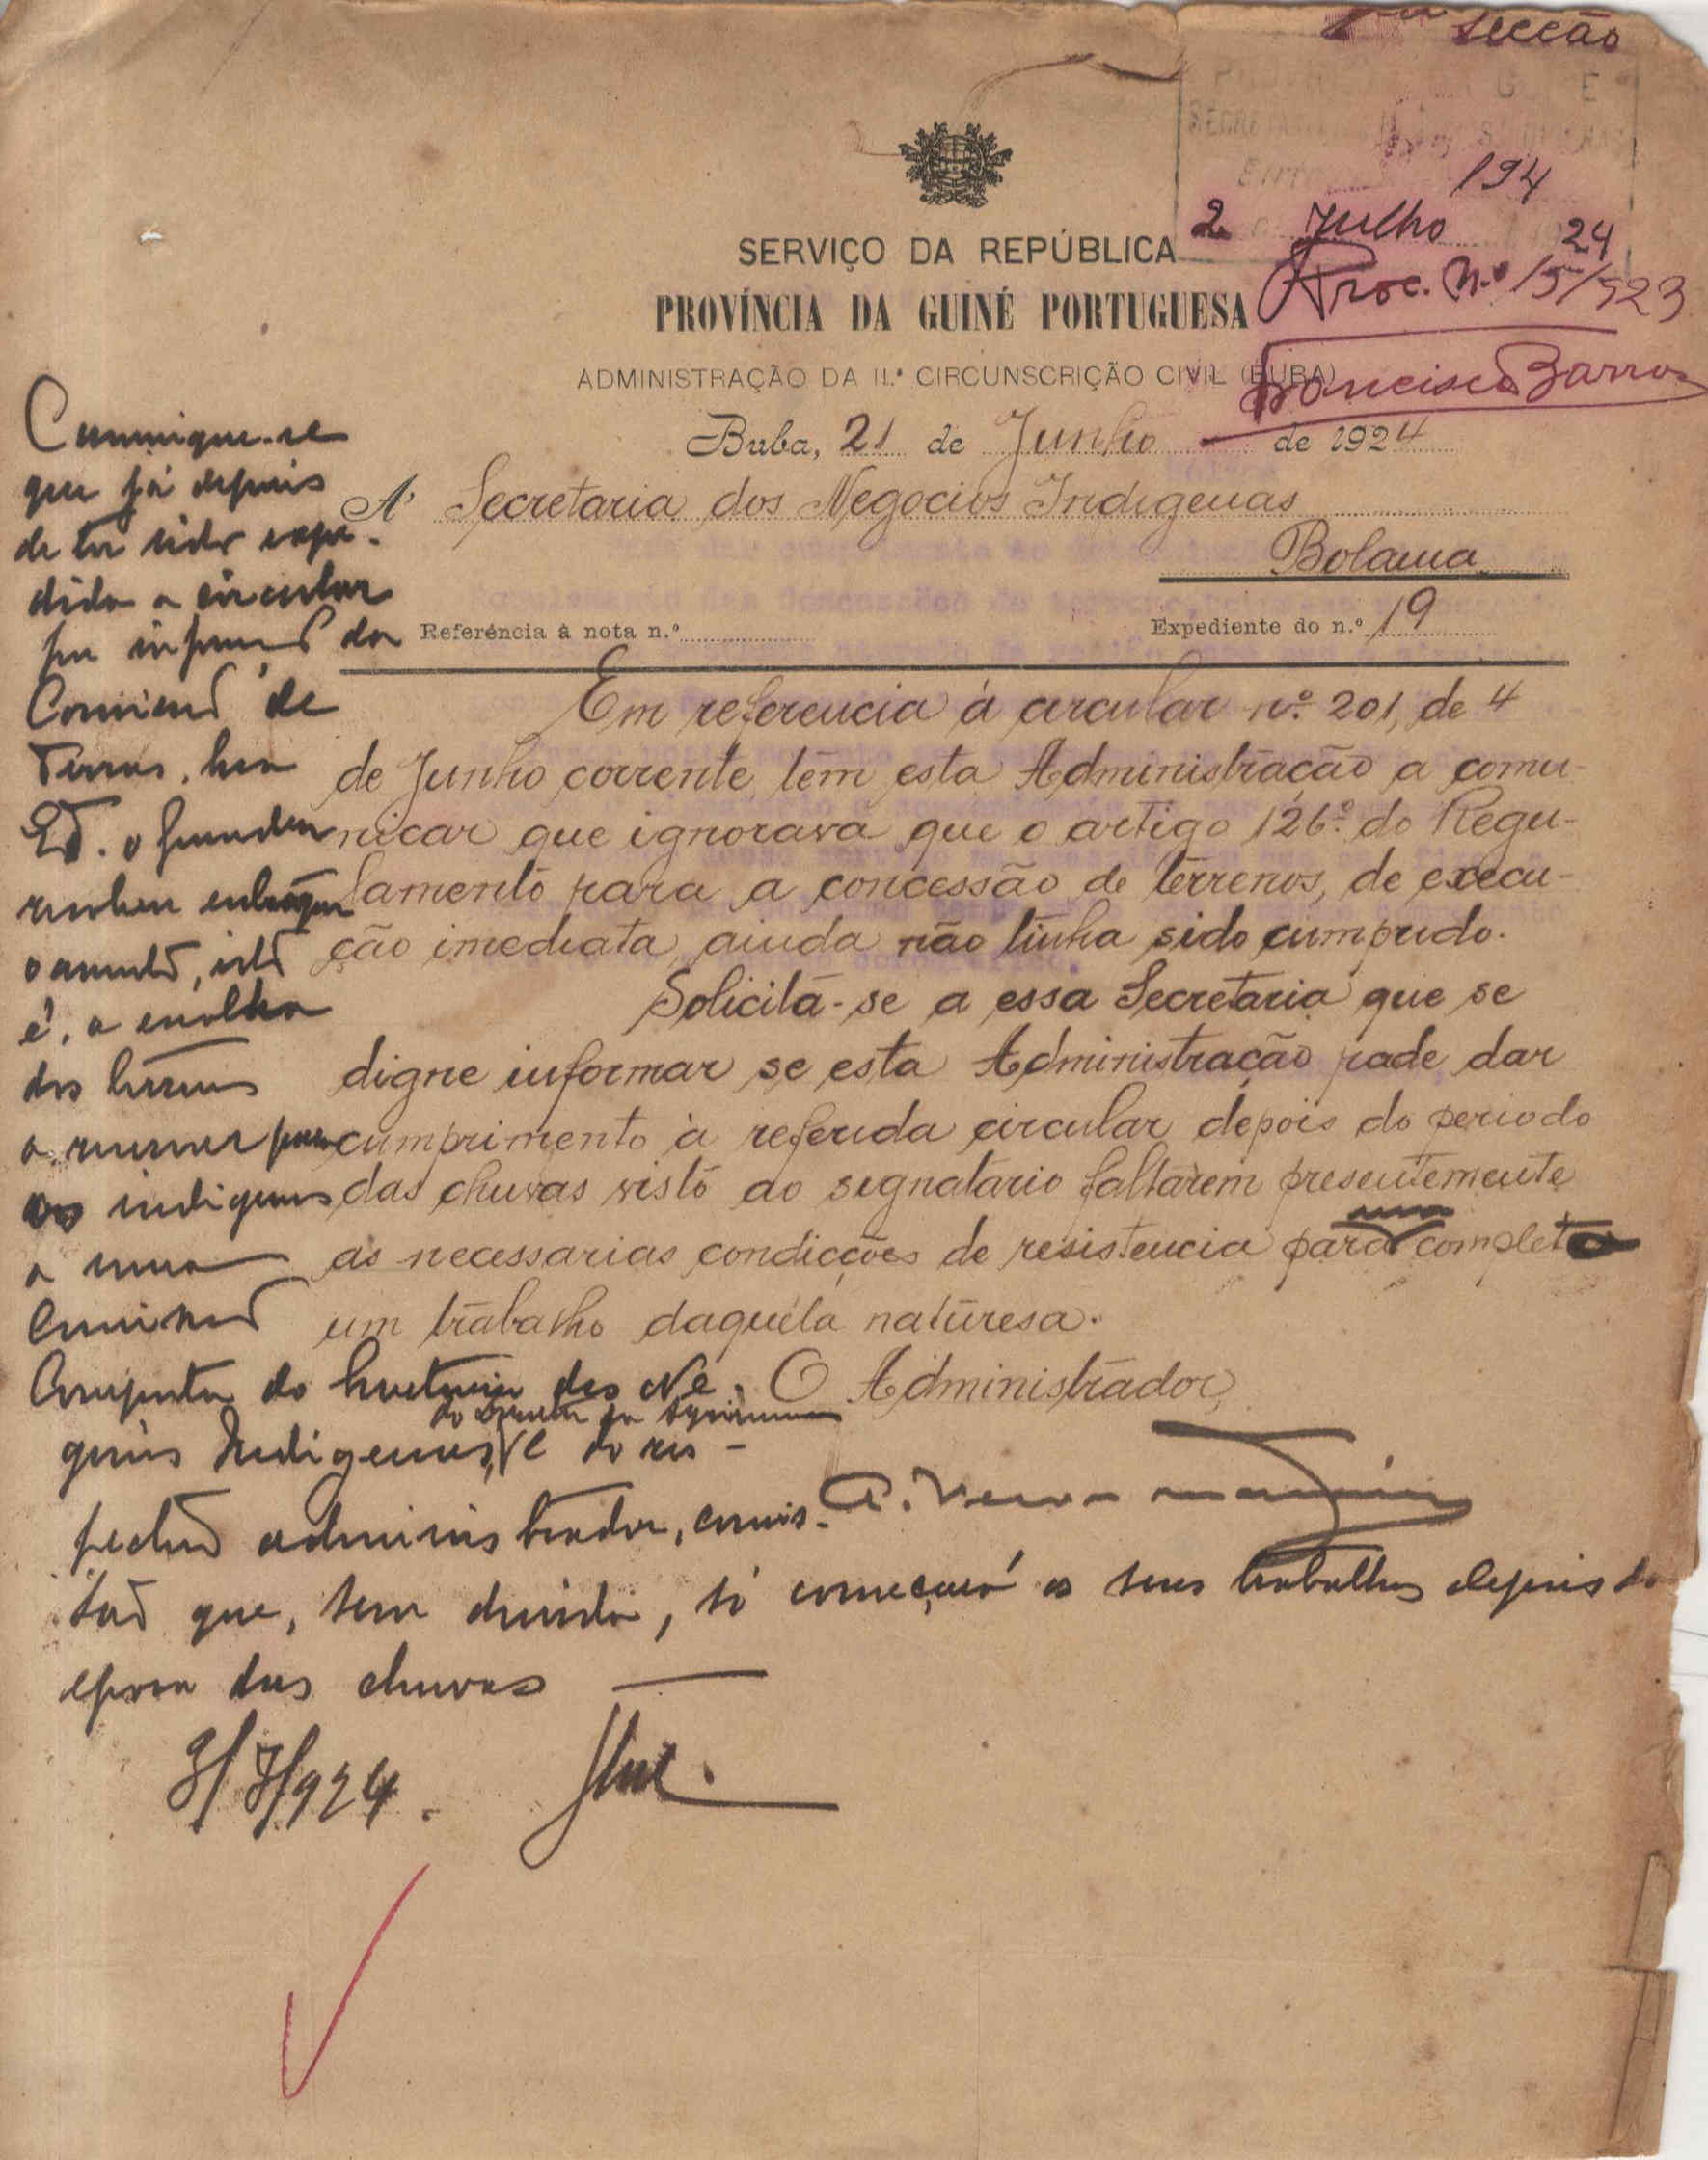 secção
194
2 Julho 24
Proc. N.º 15/923
Francisco Barros
SERVIÇO DA REPÚBLICA
PROVÍNCIA DA GUINÉ PORTUGUESA
ADMINISTRAÇÃO DA 11.ª CIRCUNSCRIÇÃO CIVIL (BUBA)
Buba, 21 de Junho de 1924
A' Secretaria dos Negocios Indigenas
Bolama
Referência à nota n.º
Expediente do n.º 19
Em referencia à circular nº. 201, de 4
de Junho corrente têm esta Administração a comu-
nicar que ignorava que o artigo 126º. do Regu-
lamento para a concessão de terrenos, de execu-
ção imediata, ainda não tinha sido cumprido.
Solicita-se a essa Secretaria que se
digne informar se esta Administração pode dar
cumprimento à referida circular depois do periodo
das chuvas visto ao segnatario faltarem presentemente
as necessarias condicções de resistencia para
um completo
um trabalho daquela naturesa.
O Administrador,
Comunique-se
que já depois
de ter sido expe-
dida a circular
por da
de
Terras, Sua
Ex. o Governador
resolveu entregar
o assunto, isto
é, a escolha
dos terrenos
a reservar para
os indigenas
a uma
comissão
composta do Secretario dos Ne-
do Director da Agricultura
gocios Indigenas, e do res-
pectivo administrador, comis-
são que, sem duvida, só começará os seus trabalhos depois da
epoca das chuvas
3/7/924.